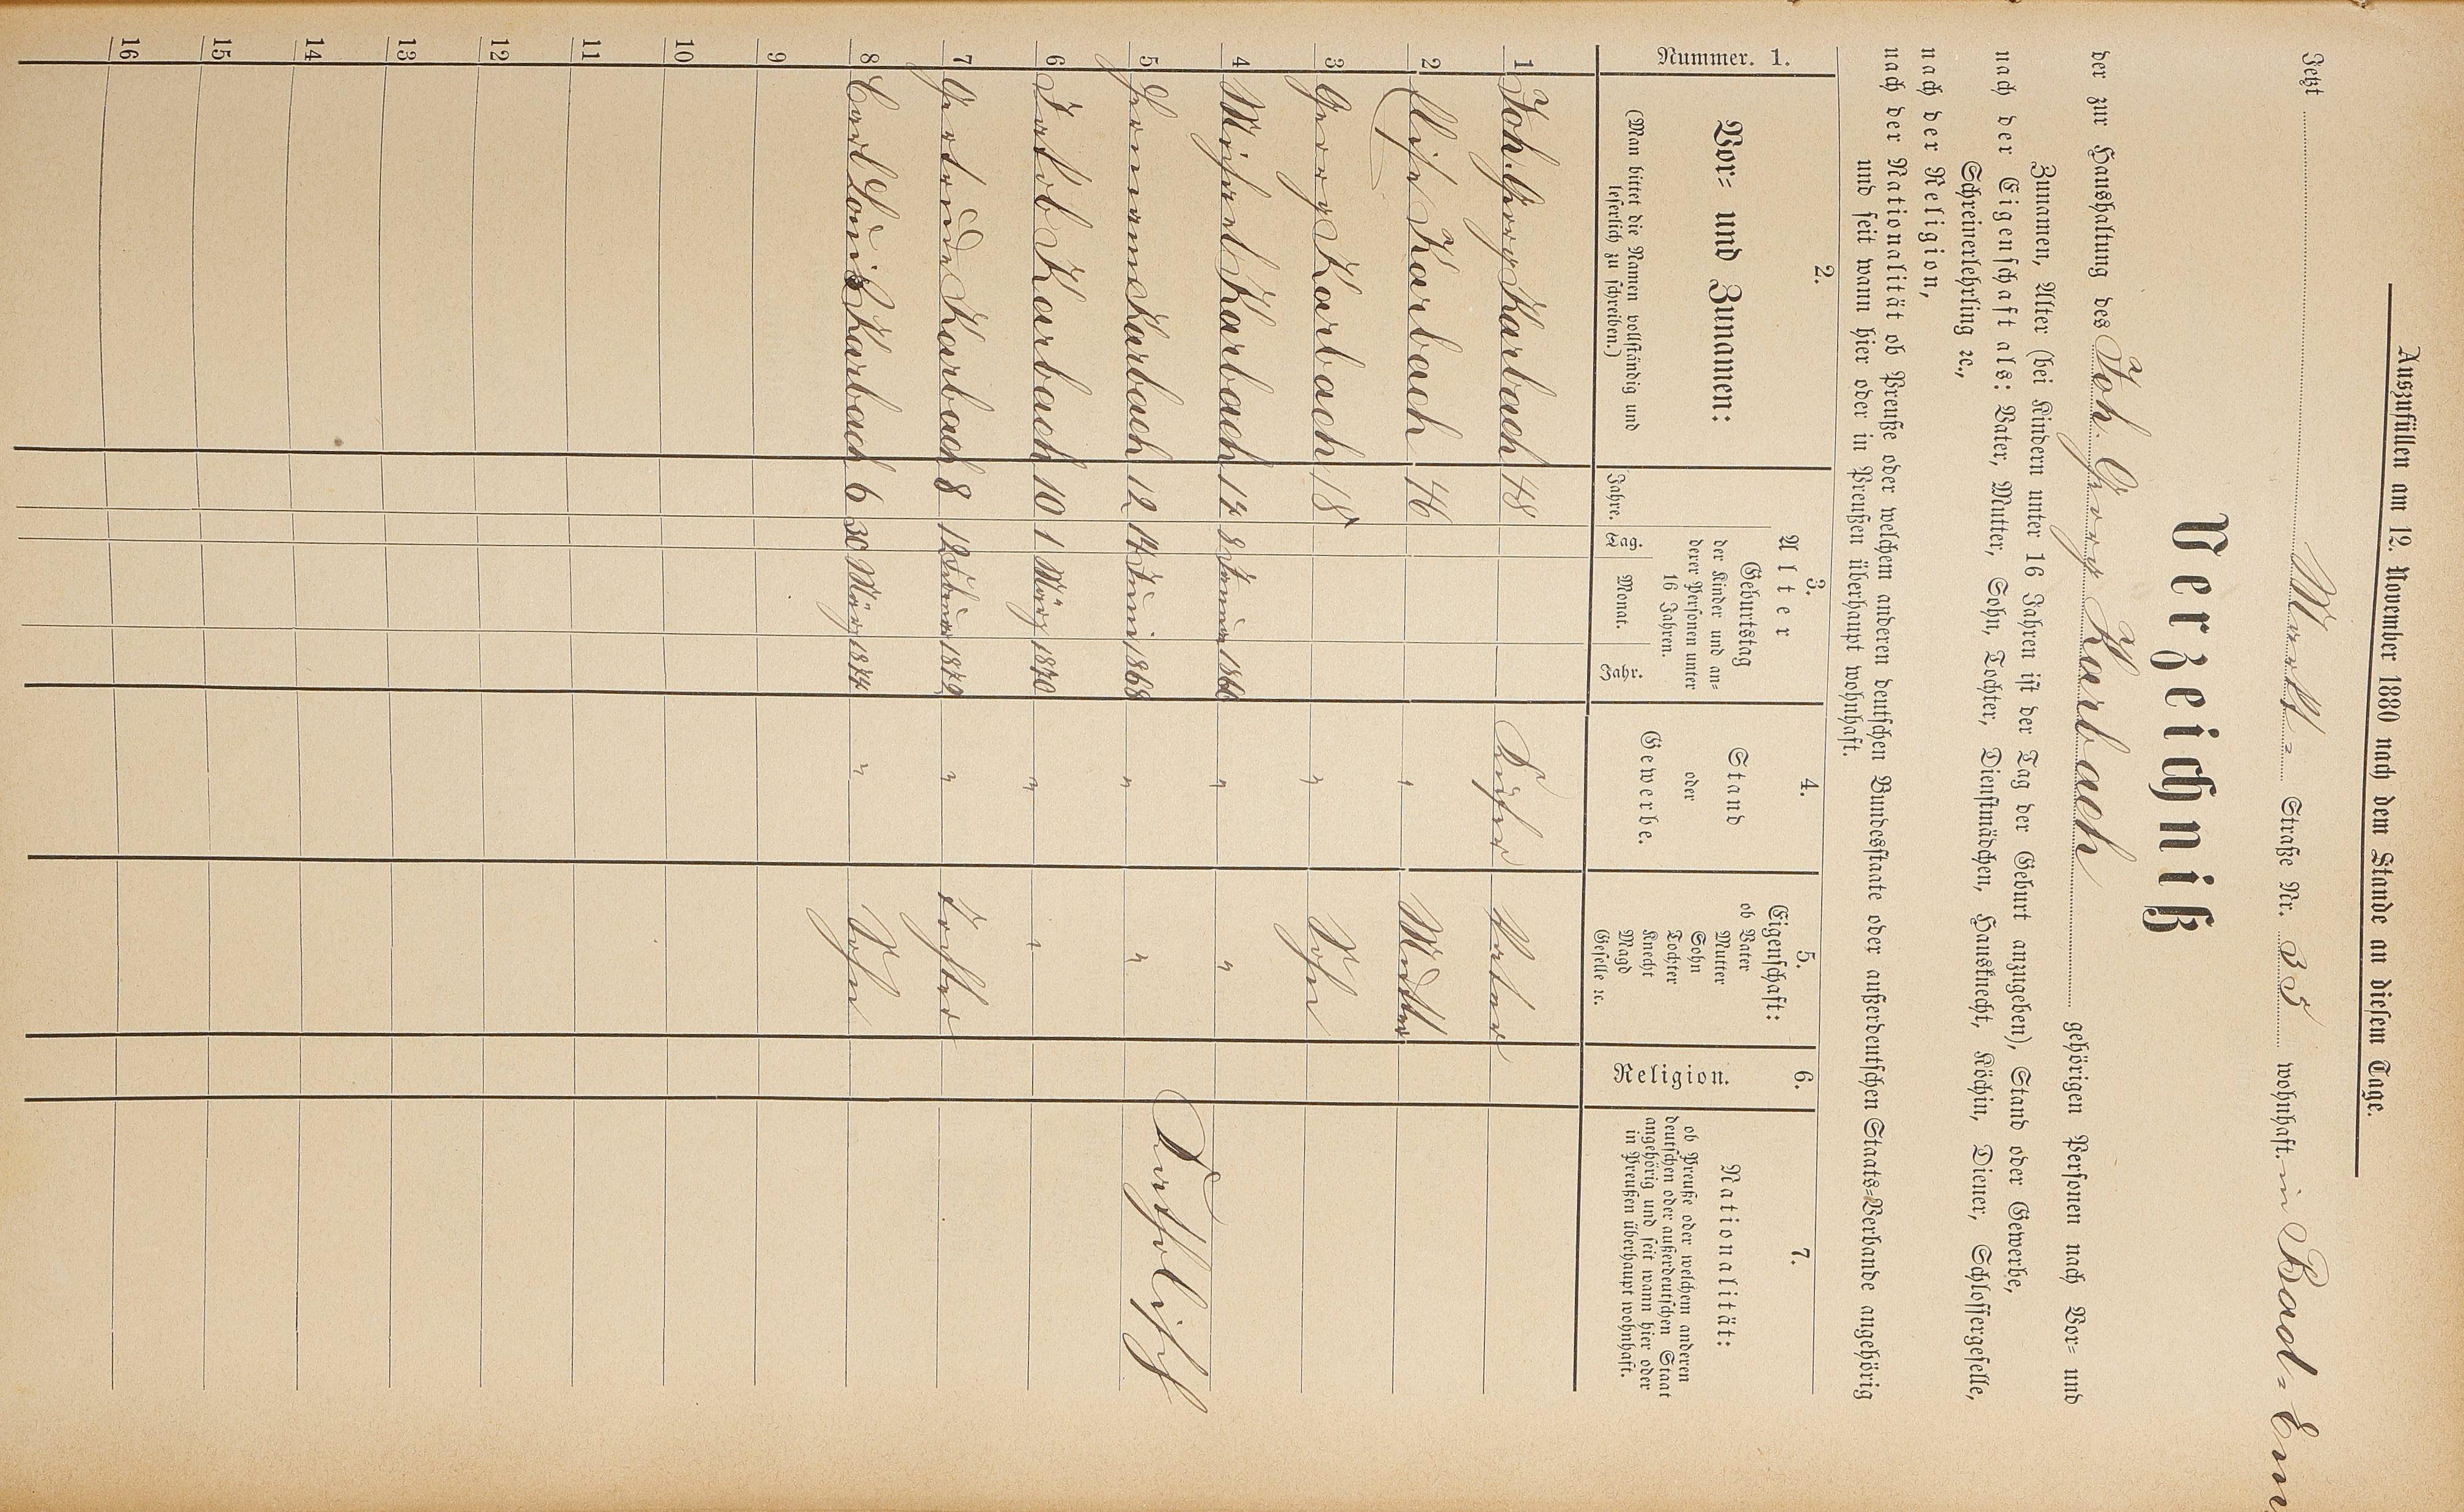 Auszufüllen am 12. November 1880 nach dem Stande an diesem Tage.
Jetzt Markt- Straße Nr. 35 wohnhaft. in Bad-Em
Verzeichniß
der zur Haushaltung des Joh. Georg Karbach gehörigen Personen nach Vor- und
Zunamen, Alter (bei Kindern unter 16 Jahren ist der Tag der Geburt anzugeben), Stand oder Gewerbe,
nach der Eigenschaft als: Vater, Mutter, Sohn, Tochter, Dienstmädchen, Hausknecht, Köchin, Diener, Schlossergeselle,
Schreinerlehrling ꝛc.,
nach der Religion,
nach der Nationalität ob Preuße oder welchem anderen deutschen Bundesstaate oder außerdeutschen Staats-Verbande angehörig
und seit wann hier oder in Preußen überhaupt wohnhaft.
Nummer. 1.
2.
Vor- und Zunamen:
(Man bittet die Namen vollständig und
leserlich zu schreiben.)
3.
Alter
Geburtstag
der Kinder und an-
derer Personen unter
16 Jahren.
Jahre. Tag. Monat. Jahr.
4.
Stand
oder
Gewerbe.
5.
Eigenschaft:
ob Vater
Mutter
Sohn
Tochter
Knecht
Magd
Geselle ꝛc.
6.
Religion.
7.
Nationalität:
ob Preuße oder welchem anderen
deutschen oder außerdeutschen Staat
angehörig und seit wann hier oder
in Preußen überhaupt wohnhaft.
1 Joh. Georg Karbach 48 Küfer Vater
2 Karbach 46 " Mutter
3 Georg Karbach 18 " Sohn
4 Michael Karbach 14 8 Januar 1866 " "
5 Hermann Karbach 12 14 Juni 1868 " "
6 Jakob Karbach 10 1 März 1870 " "
Katholisch
7 Gertrude Karbach 8 12 Februar 1872 " Tochter
8 Carl Louis Karbach 6 30 März 1874 " Sohn
9
10
11
12
13
14
15
16